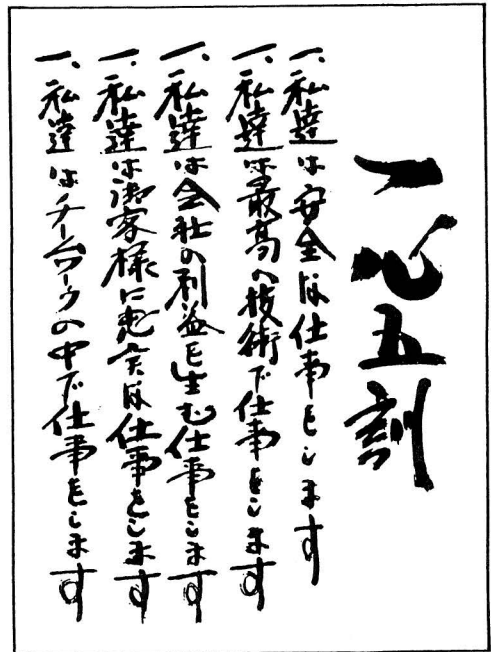 一心五訓
一、私達は安全な仕事をします
一、私達は最高の技術で仕事をします
一、私達は会社の利益を生む仕事をします
一、私達は御客様に忠実な仕事をします
一、私達はチームワークの中で仕事をします